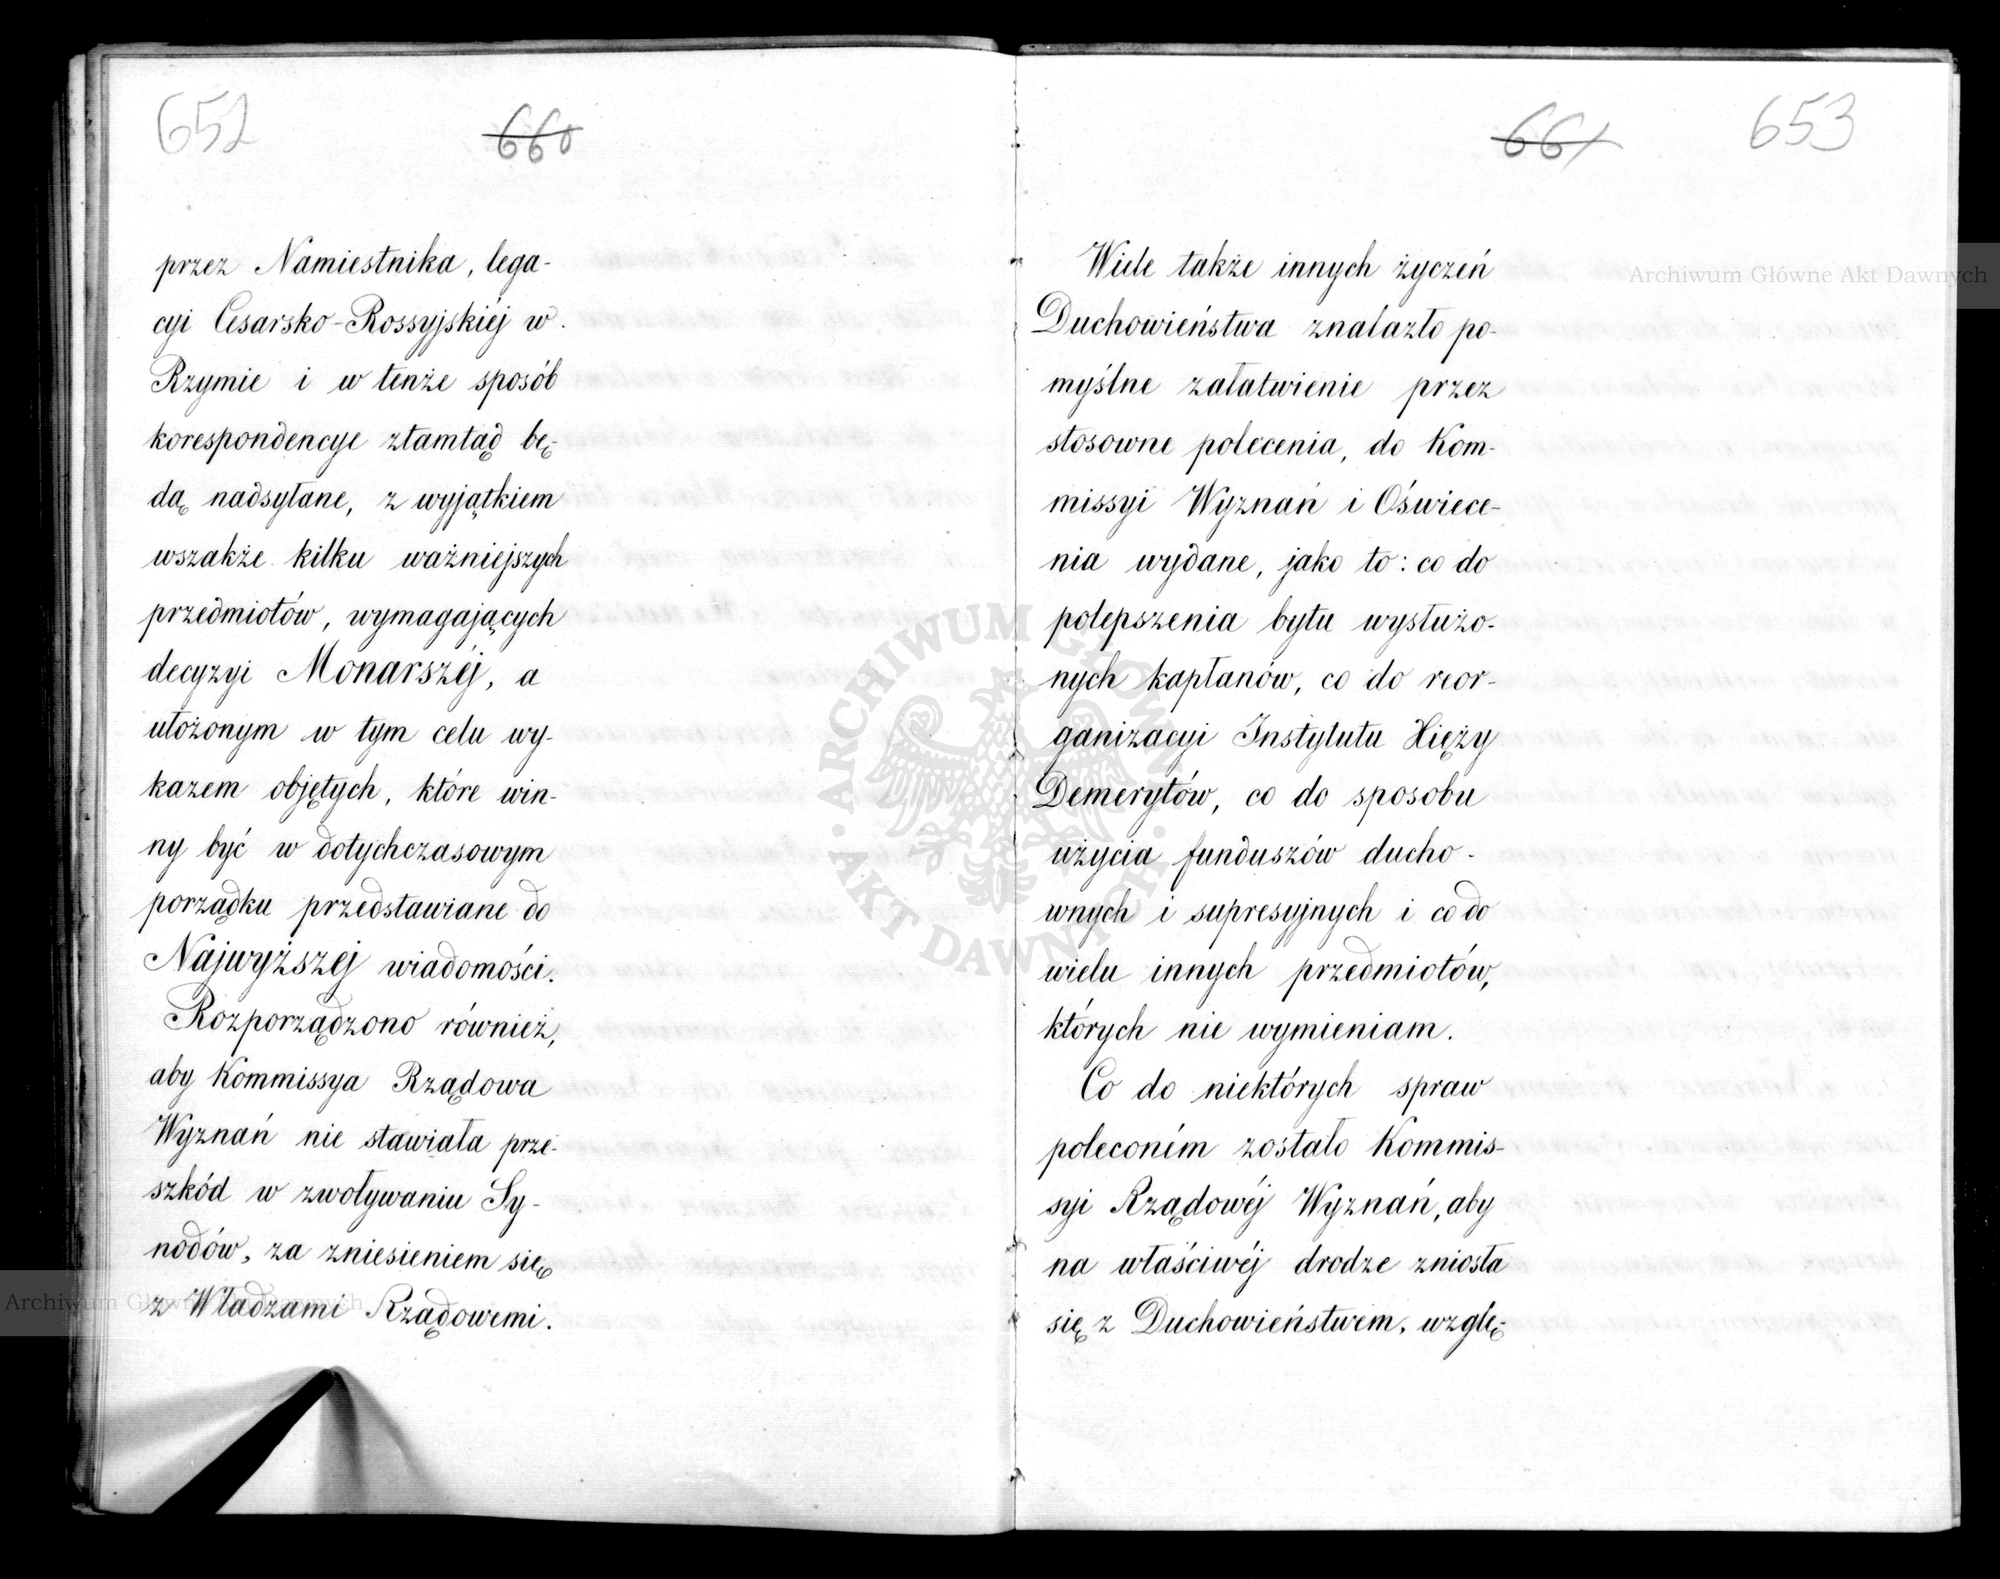 652
660
przez Namiestnika, lega-
cyi Cesarsko-Rossyjskiéj w
Rzymie i w tenże sposób
korespondencye ztamtąd bę-
dą nadsyłane, z wyjątkiem
wszakże kilku ważniejszych
przedmiotów, wymagających
decyzyi Monarszéj, a
ułożonym w tym celu wy-
kazem objętych, które win-
ny być w dotychczasowym
porządku przedstawiane do
Najwyższej wiadomości.
Rozporządzono również,
aby Kommissya Rządowa
Wyznań nie stawiała prze-
szkód w zwoływaniu Sy-
nodów, za zniesieniem się
z Władzami Rządowemi.
661
653
Wiele także innych życzeń
Duchowieństwa znalazło po-
myślne załatwienie przez
stosowne polecenia, do Kom-
missyi Wyznań i Oświece-
nia wydane, jako to: co do
polepszenia bytu wysłużo-
nych kapłanów, co do reor-
ganizacyi Instytutu Xięży
Demerytów, co do sposobu
użycia funduszów ducho-
wnych i supresyjnych i co do
wielu innych przedmiotów,
których nie wymieniam.
Co do niektórych spraw
poleconém zostało Kommis-
syi Rządowéj Wyznań, aby
na właściwéj drodze zniosła
się z Duchowieństwem, wzglę-
Archiwum Główne Akt Dawnych
ARCHIWUM GŁÓWNE
AKT DAWNYCH
Archiwum Główne Akt Dawnych